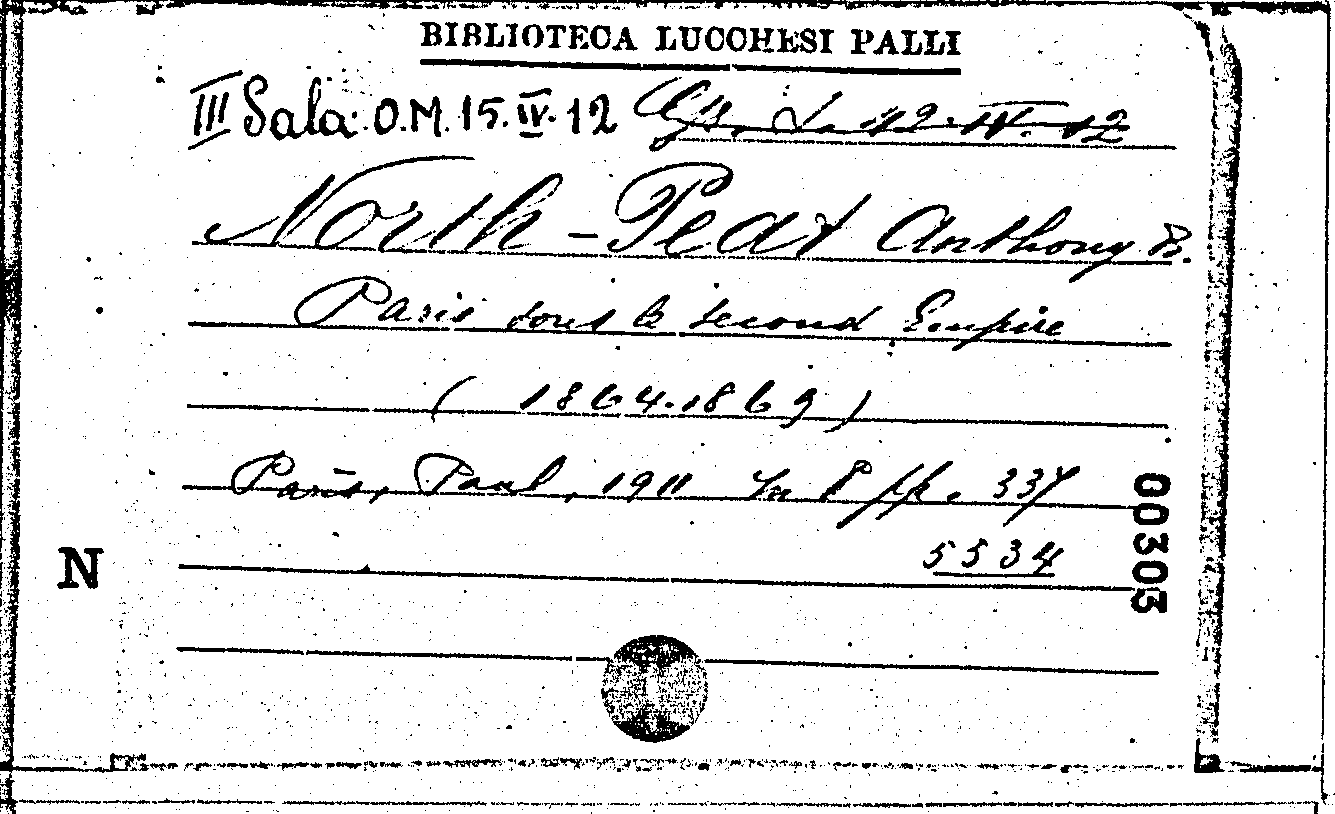 BIBLIOTECA LUCCHESI PALLI
III Sala: O.M. 15. IV. 12
North-Peat Anthony B.
Paris sous le second Empire
(1864.1869)
Paris, Paul, 1911 In 8° pp. 337
5534
N
00303